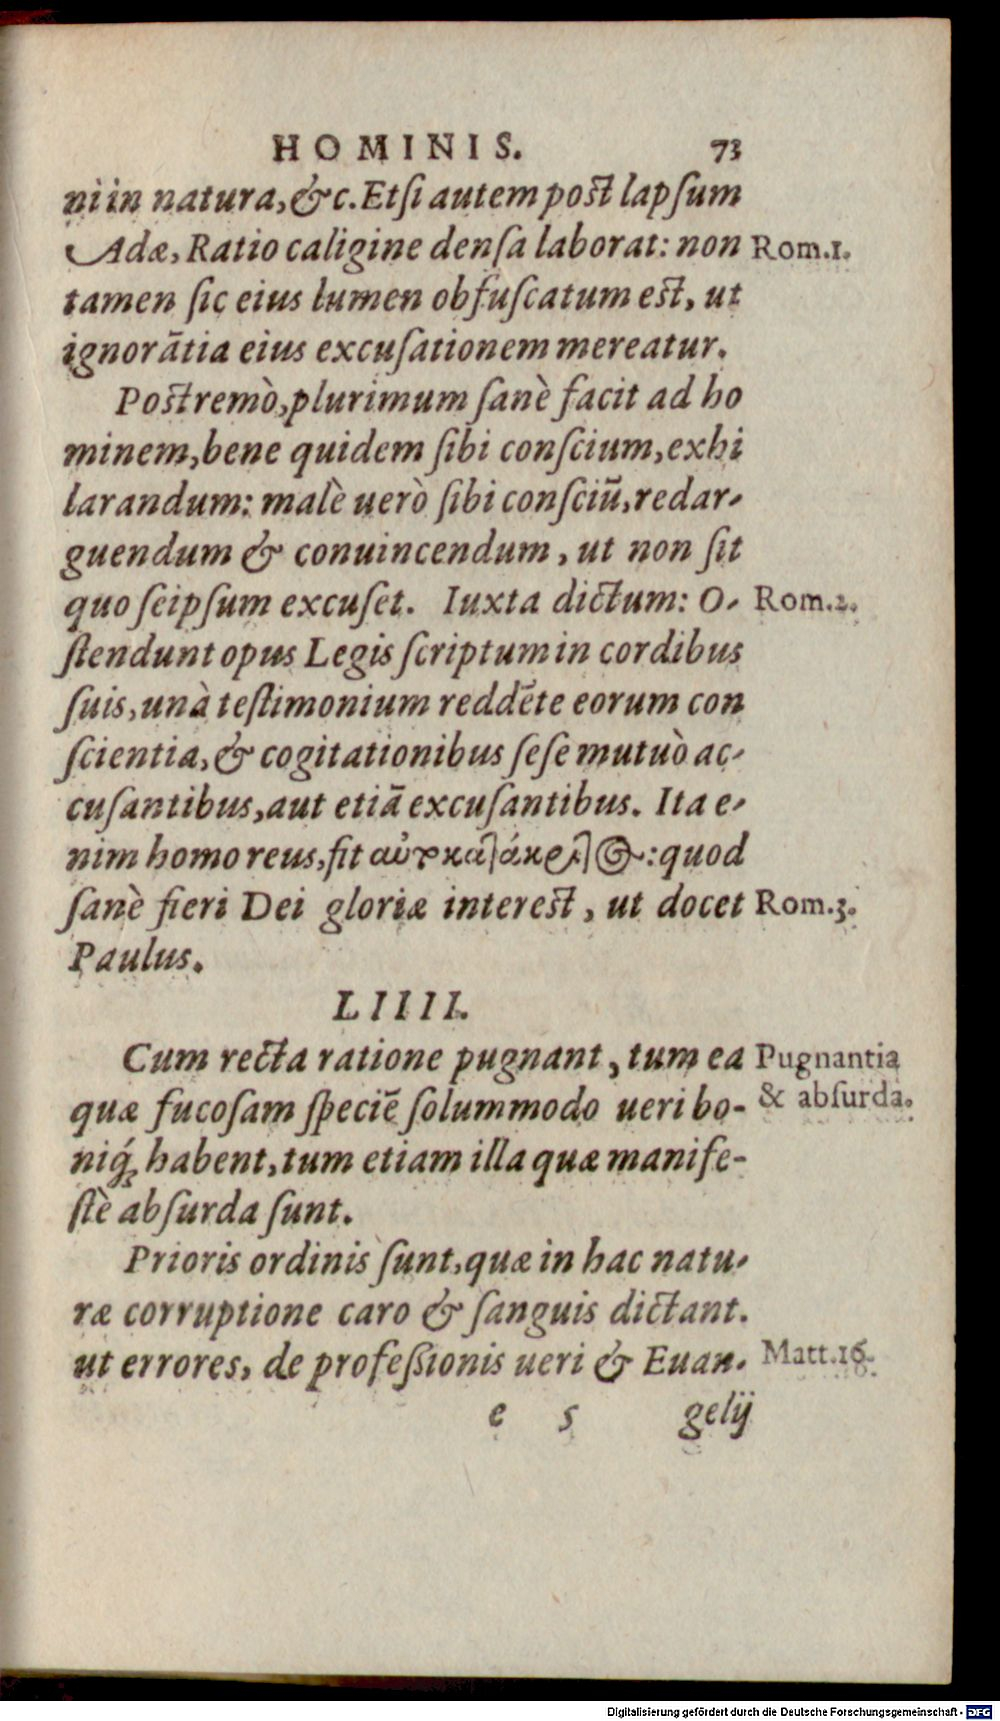 HOMINIS. 73
ni in natura, &c. Etsi autem post lapsum
Adæ, Ratio caligine densa laborat: non Rom.1.
tamen sic eius lumen obfuscatum est, ut
ignorātia eius excusationem mereatur.
Postremò, plurimum sanè facit ad ho
minem, bene quidem sibi conscium, exhi
larandum: malè uerò sibi consciũ, redar-
guendum & conuincendum, ut non sit
quo seipsum excuset. Iuxta dictum: O- Rom.2.
stendunt opus Legis scriptum in cordibus
suis, unà testimonium reddēte eorum con
scientia, & cogitationibus sese mutuò ac-
cusantibus, aut etiā excusantibus. Ita e-
nim homo reus, fit αὐτοκατάκριτος: quod
sanè fieri Dei gloriæ interest, ut docet Rom.3.
Paulus.
LIIII.
Cum recta ratione pugnant, tum ea Pugnantia
quæ fucosam speciē solummodo ueri bo- & absurda.
niq́; habent, tum etiam illa quæ manife-
stè absurda sunt.
Prioris ordinis sunt, quæ in hac natu-
ræ corruptione caro & sanguis dictant.
ut errores, de professionis ueri & Euan- Matt.16.
e 5 gelij
Digitalisierung gefördert durch die Deutsche Forschungsgemeinschaft - DFG